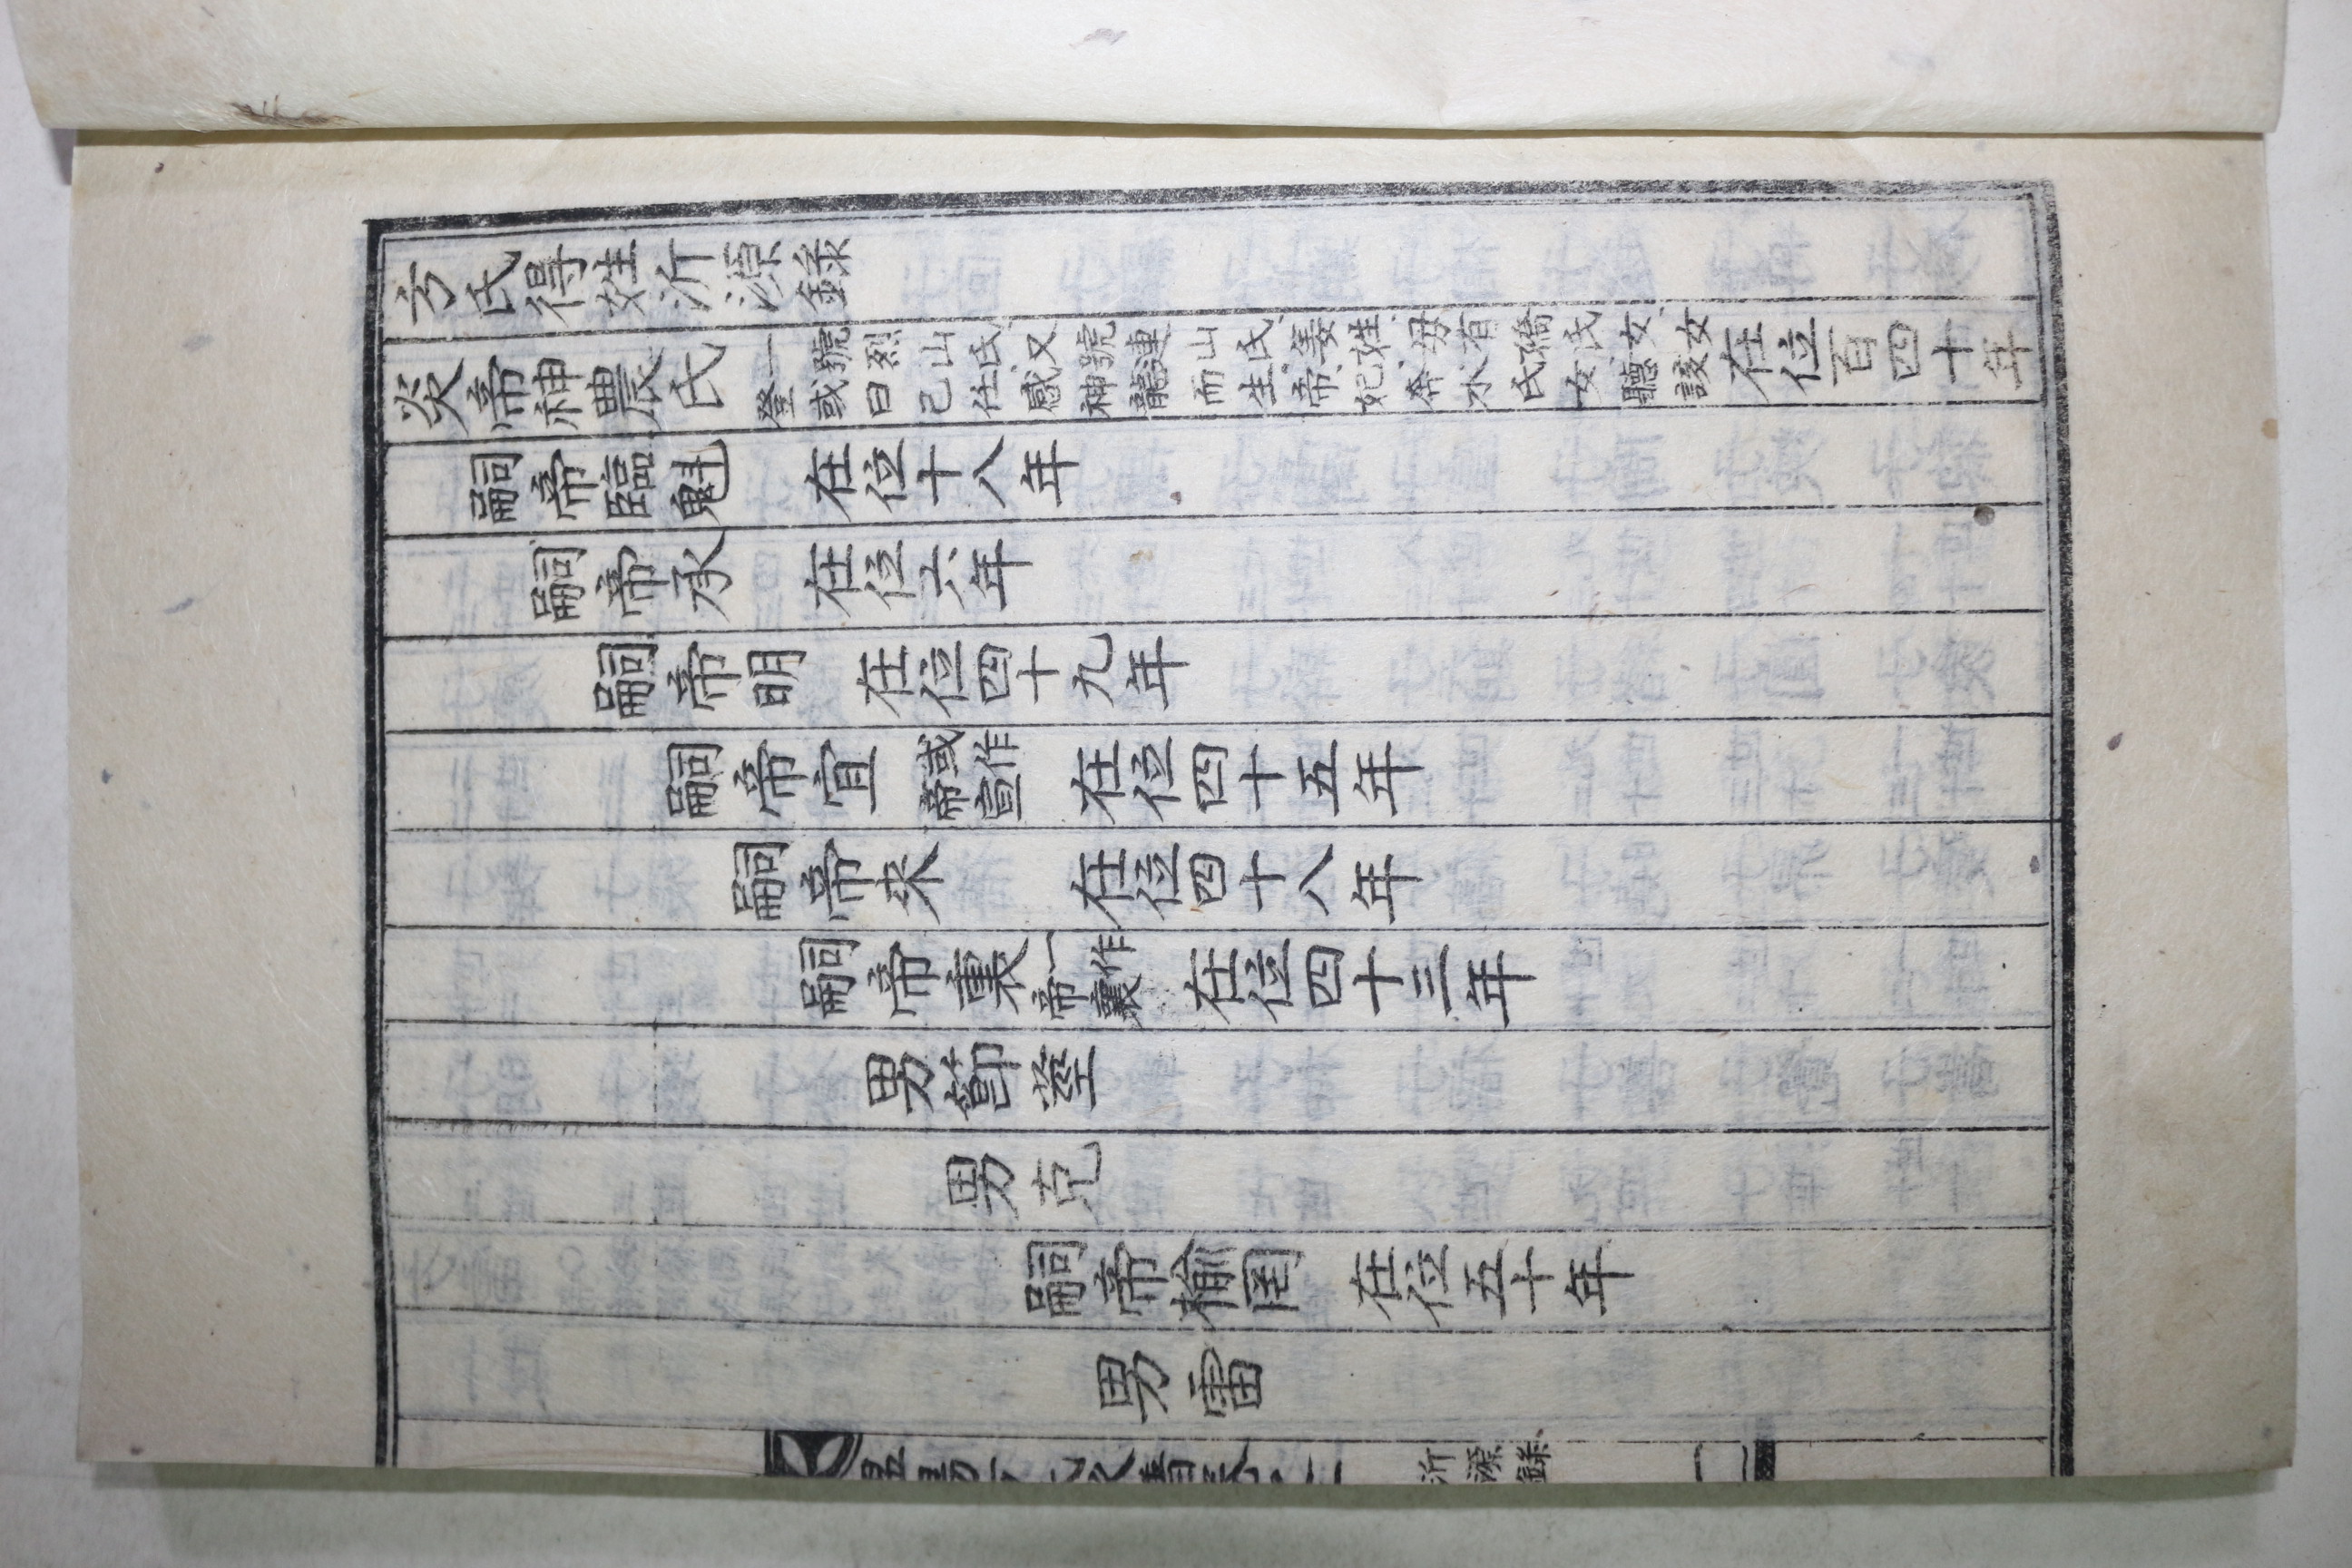 方氏得姓沂源錄
炎帝神農氏 一號烈山氏又號連山氏姜姓母有僑氏女女
登或曰己任感神龍而生帝妃奔水氏女聽詙 在位百四十年
嗣帝臨魁 在位十八年
嗣帝承 在位六年
嗣帝明 在位四十九年
嗣帝宜 或作
帝宣 在位四十五年
嗣帝來 在位四十八年
嗣帝裏 一作
帝襄 在位四十三年
男節莖
男克
嗣帝榆罔 在位五十年
男雷
沂源錄 一